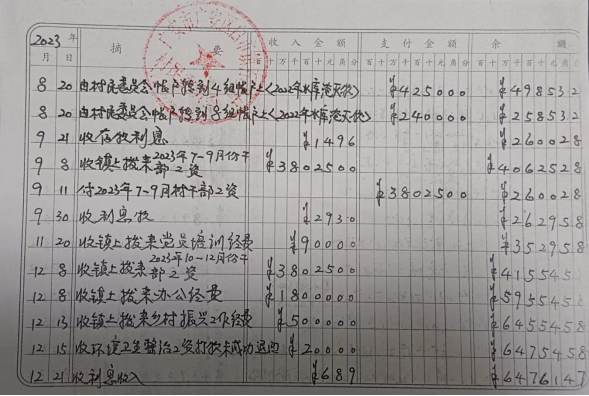 2023年 摘要 收入金额 支付金额 余额
月 日 百十万千百十元角分 百十万千百十元角分 百十万千百十元角
8 20 由村民委员会帐户转到4组帐户上(2022年水库淹没款) ¥425000 ¥498532
8 20 由村民委员会帐户转到8组帐户上(2022年水库淹没款) ¥240000 ¥258532
9 21 收存款利息 ¥1496 ¥260028
9 8 收镇上拨来2023年7-9月份干部工资 ¥3802500 ¥4062528
9 11 付2023年7-9月村干部工资 ¥3802500 ¥260028
9 30 收利息款 ¥2930 ¥262958
11 20 收镇上拨来党员培训经费 ¥90000 ¥352958
12 8 收镇上拨来2023年10-12月份干部工资 ¥3802500 ¥415545
12 8 收镇上拨来办公经费 ¥1800000 ¥595545
12 13 收镇上拨来乡村振兴工作经费 ¥500000 ¥6455458
12 15 收环境卫生整治工资打款未成功退回 ¥20000 ¥6475458
12 21 收利息收入 ¥689 ¥6476147